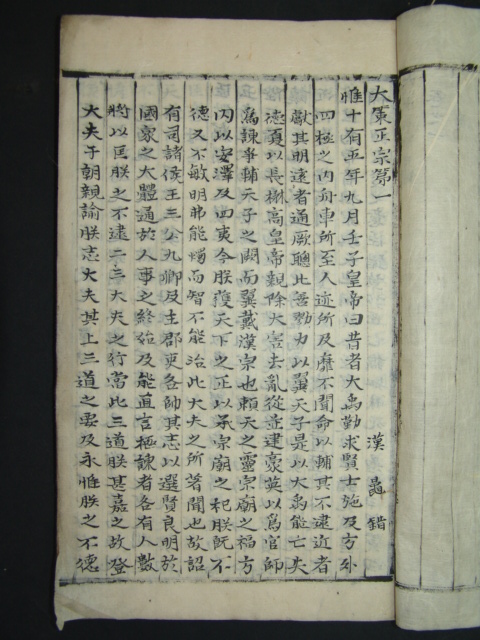 大策正宗第一
漢 鼂錯
惟十有五年九月壬子皇帝曰昔者大禹勤求賢士施及方外
四極之內舟車所至人迹所及靡不聞命以輔其不逮近者
獻其明遠者通厥聰比善勠力以翼天子是以大禹能亡失
德夏以長楙高皇帝親除大害去亂從並建豪英以爲官師
爲諫爭輔天子之闕而翼戴漢宗也賴天之靈宗廟之福方
內以安澤及四夷今朕獲天下之正以承宗廟之祀朕旣不
德又不敏明弗能燭而智不能治此大夫之所著聞也故詔
有司諸侯王三公九卿及主郡吏各帥其志以選賢良明於
國家之大體通於人事之終始及能直言極諫者各有人數
將以匡朕之不逮二三大夫之行當此三道朕甚嘉之故登
大夫于朝親諭朕志大夫其上三道之要及永惟朕之不德